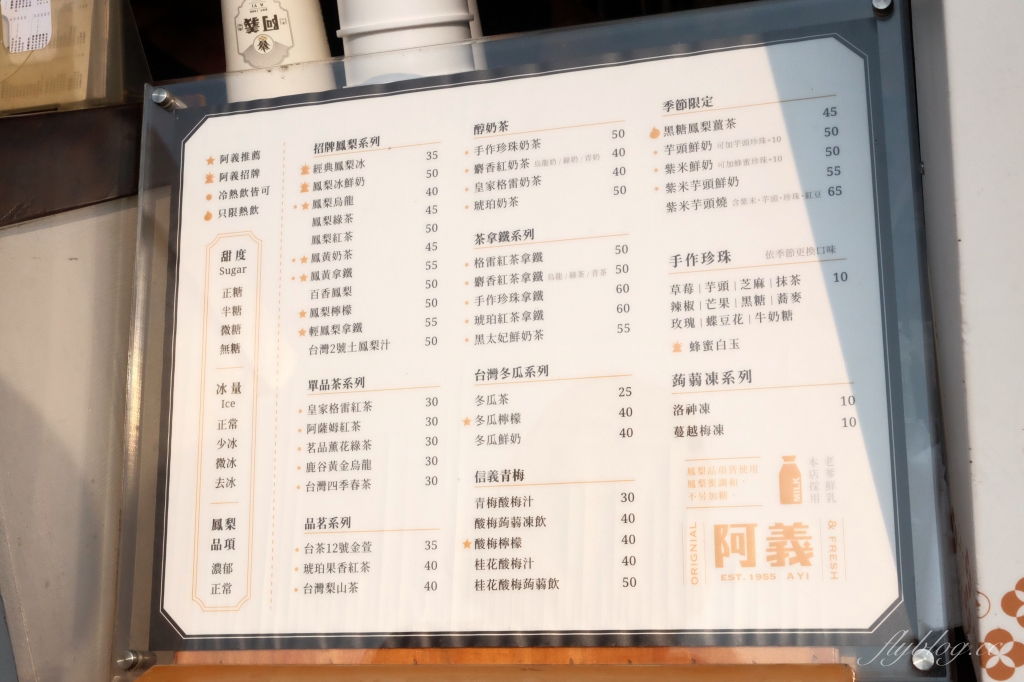 阿義
阿義推薦
阿義招牌
冷熱飲皆可
只限熱飲
甜度
Sugar
正糖
半糖
微糖
無糖
冰量
Ice
正常
少冰
微冰
去冰
鳳梨
品項
濃郁
正常
招牌鳳梨系列
經典鳳梨冰 35
鳳梨冰鮮奶 50
鳳梨烏龍 40
鳳梨綠茶 45
鳳梨紅茶 50
鳳黃奶茶 45
鳳黃拿鐵 55
百香鳳梨 50
鳳梨檸檬 50
輕鳳梨拿鐵 55
台灣2號土鳳梨汁 50
單品茶系列
皇家格雷紅茶 30
阿薩姆紅茶 30
茗品薰花綠茶 30
鹿谷黃金烏龍 30
台灣四季春茶 30
品茗系列
台茶12號金萱 35
琥珀果香紅茶 40
台灣梨山茶 40
醇奶茶
手作珍珠奶茶 50
麝香紅奶茶 烏龍奶/綠奶/青奶 40
皇家格雷奶茶 40
琥珀奶茶 50
茶拿鐵系列
格雷紅茶拿鐵 50
麝香紅茶拿鐵 烏龍/綠茶/青茶 50
手作珍珠拿鐵 60
琥珀紅茶拿鐵 60
黑太妃鮮奶茶 55
台灣冬瓜系列
冬瓜茶 25
冬瓜檸檬 40
冬瓜鮮奶 40
信義青梅
青梅酸梅汁 30
酸梅蒟蒻凍飲 40
酸梅檸檬 40
桂花酸梅汁 40
桂花酸梅蒟蒻飲 50
季節限定
黑糖鳳梨薑茶 45
芋頭鮮奶 可加芋頭珍珠+10 50
紫米鮮奶 可加蜂蜜珍珠+10 50
紫米芋頭鮮奶 55
紫米芋頭燒 含紫米、芋頭、珍珠、紅豆 65
手作珍珠 依季節更換口味
草莓|芋頭|芝麻|抹茶 10
辣椒|芒果|黑糖|蕎麥
玫瑰|蝶豆花|牛奶糖
蜂蜜白玉
蒟蒻凍系列
洛神凍 10
蔓越梅凍 10
鳳梨品項皆使用
鳳梨蜜調和，
不另加糖。
MILK
本店採用
老爹鮮乳
ORIGNIAL
阿義
& FRESH
EST. 1955 AYI
flyblog.cc